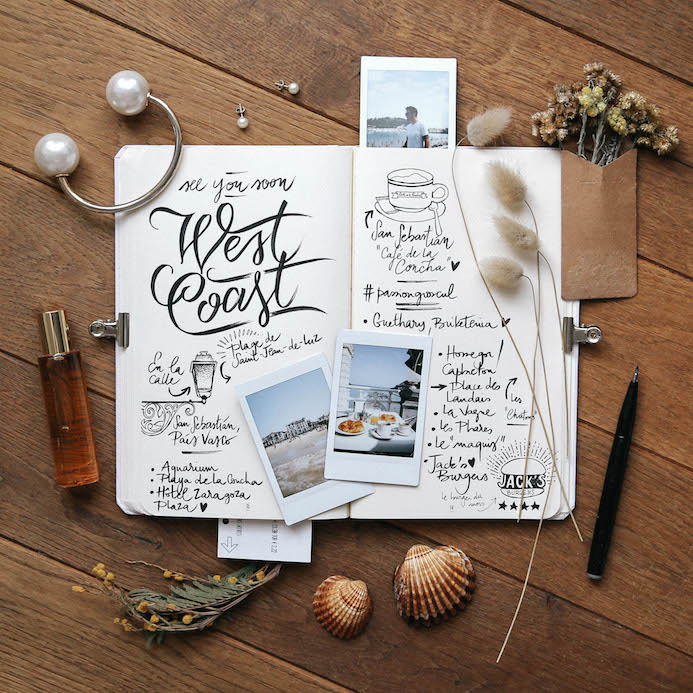 see you soon
West
Coast
Plage de
Saint-Jean-de-Luz
En la
calle
San Sebastián,
País Vasco
• Aquarium
Playa de la Concha
• Hôtel Zaragoza
Plaza ♥
San Sebastián
"Café de la
Concha" ♥
#passiongroscul
• Guethary, Buiketenia ♥
• Hossegor/
Capbreton
Place des
Landais
Les
• La Vague
• Le Pharès
• Le "maquis"
Jack's
Burgers
le burger du
JACK'S
BURGERS
★★★★